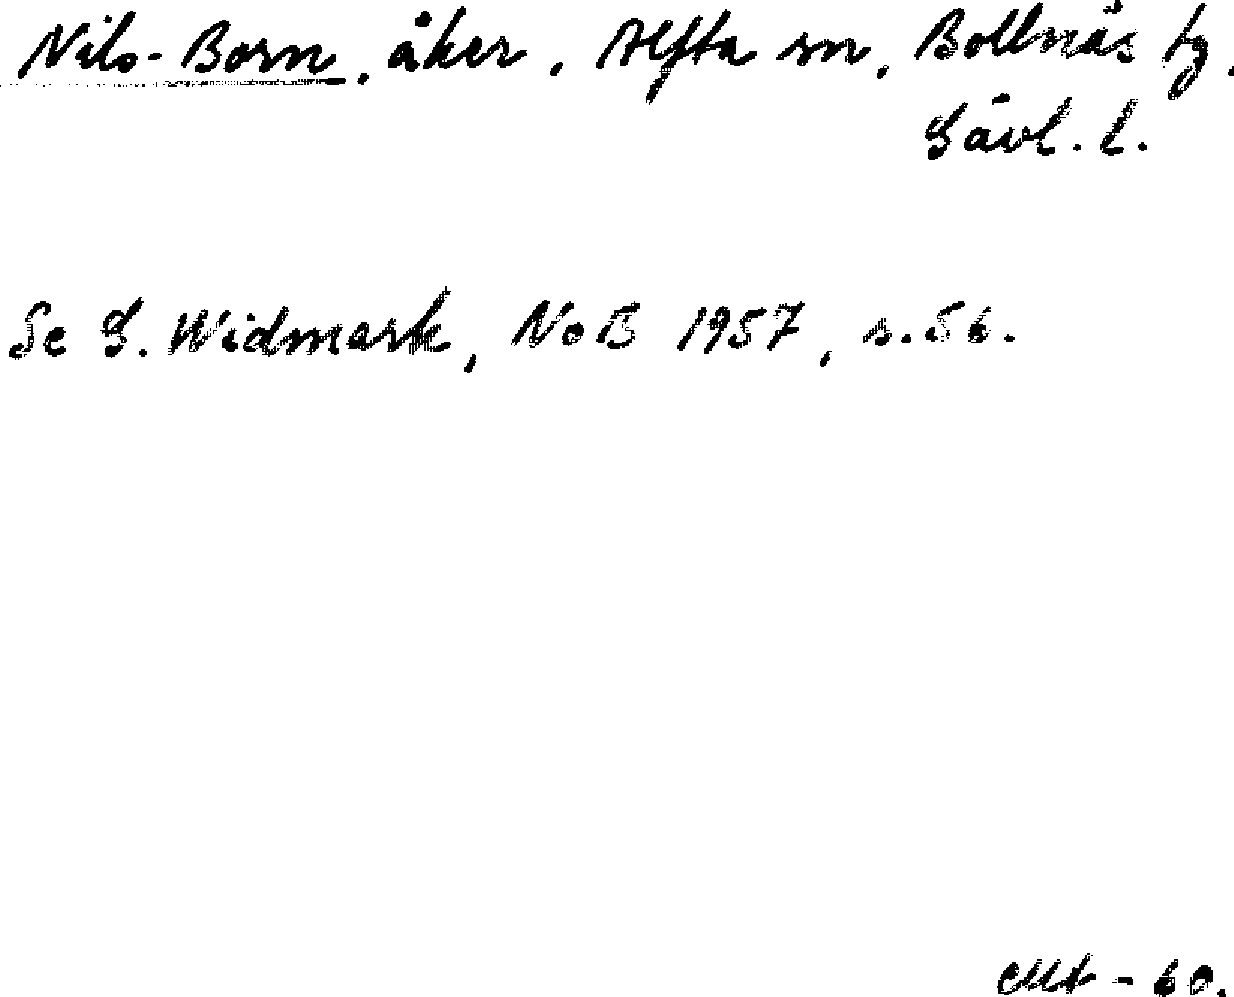 Nils-Born, åker, Alfta sn, Bollnäs tg,
Gävl. l.
Se G. Widmark, NoB 1957, s. 56.